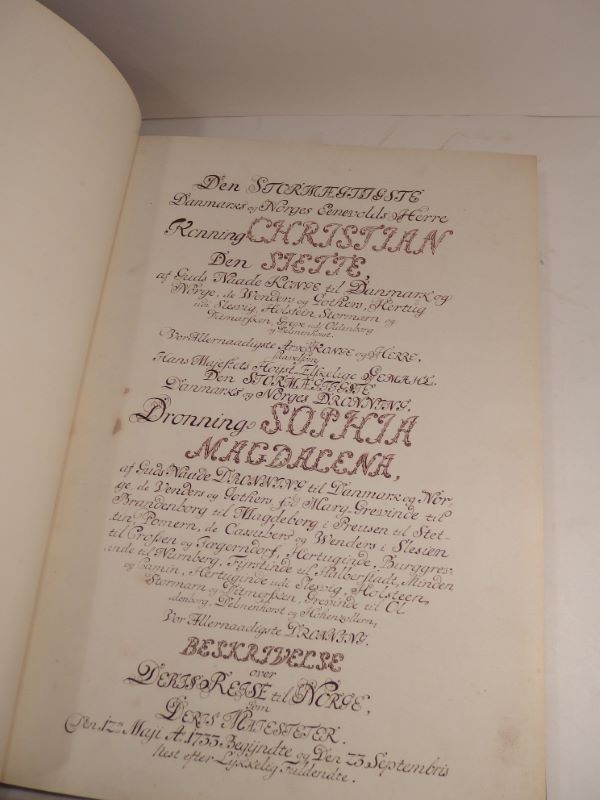 Den STORMÆGTIGSTE
Danmarks og Norges Eenevolds Herre
Konning CHRISTIAN
Den SIETTE,
af Guds Naade KONGE til Danmark og
Norge, de Wenders og Gothers, Hertug
udi Slesvig, Holstein, Stormarn og
Ditmarsken, Greve udi Oldenborg
og Delmenhorst.
Vor Allernaadigste Arve KONGE og HERRE,
saavelsom
Hans Majestets Høyst-Elskelige GEMAHL
Den STORMÆGTIGSTE
Danmarks og Norges DRONNING,
Dronning SOPHIA
MAGDALENA,
af Guds Naade DRONNING til Danmark og Nor,
ge, de Venders og Gothers, fød Marg-Grevinde til
Brandenborg til Magdeborg i Preusen til Stet,
tin, Pomern, de Cassubers og Wenders i Slesien
til Crossen og Jægerndorf, Hertuginde, Burggrev,
inde til Nurnberg, Fyrstinde til Halberstadt, Minden
og Camin, Hertuginde udi Slesvig, Holsteen,
Stormarn og Ditmarsken, Grevinde til Ol
denborg, Delmenhorst og Hohenzollern,
Vor Allernaadigste DRONNING.
BESKRIVELSE
over
DERIS REJSE til NORGE,
som
DERIS MAIESTETER.
Den 12te Maji Ao. 1733 Begyndte og Den 23 Septembris
Nest efter Lykkelig Fuldendte.